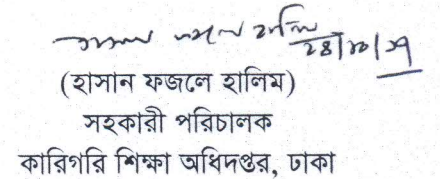 (হাসান ফজলে হালিম)
সহকারী পরিচালক
কারিগরি শিক্ষা অধিদপ্তর, ঢাকা